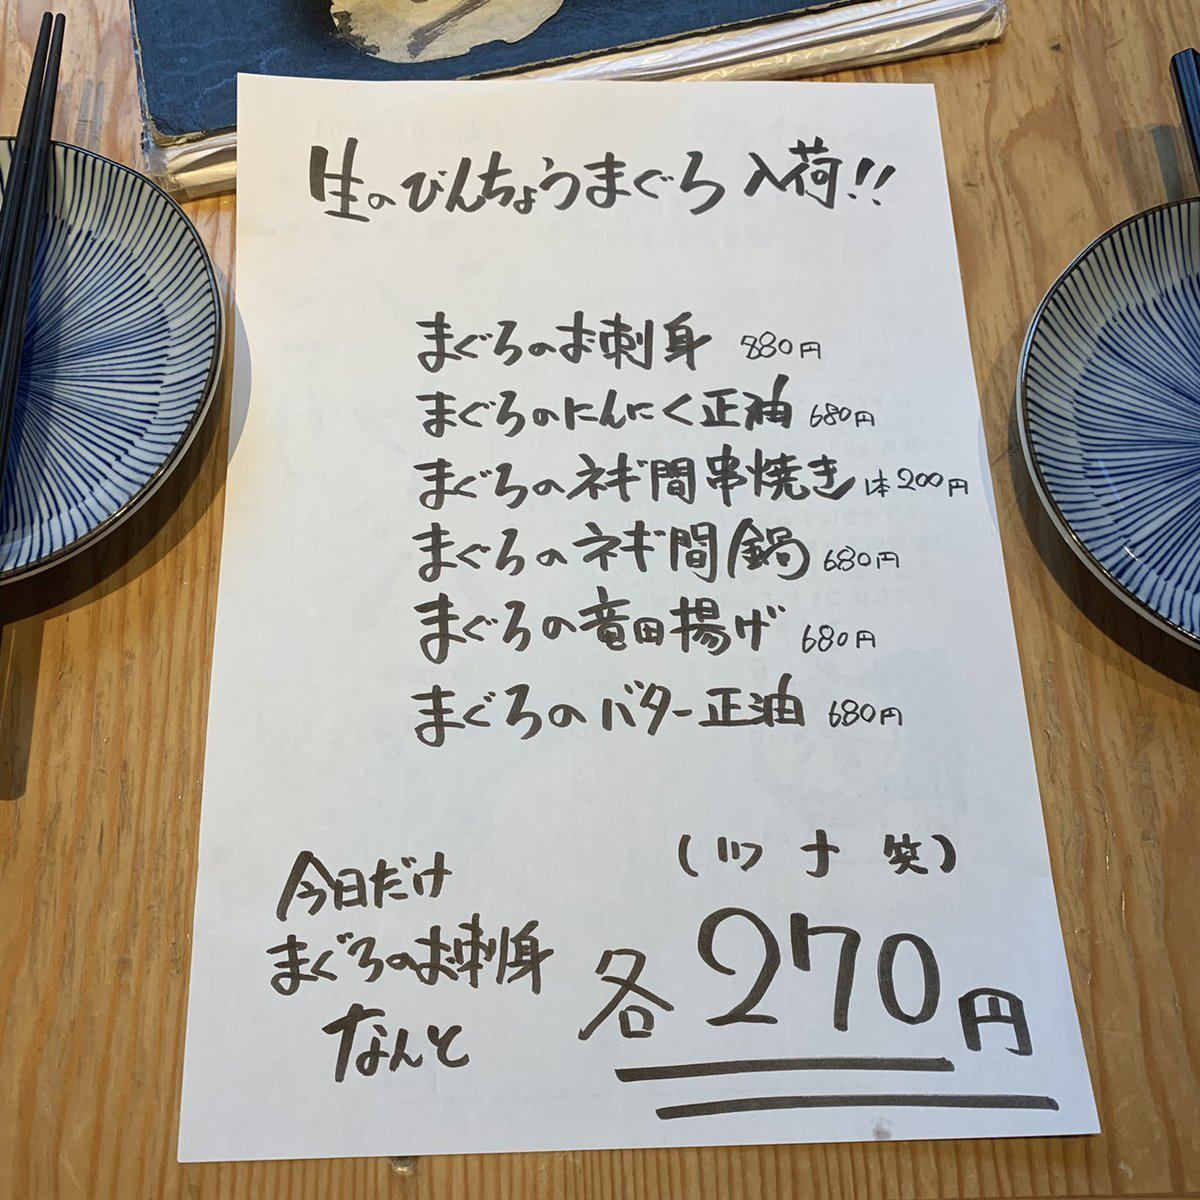 生のびんちょうまぐろ 入荷!!
まぐろのお刺身 880円
まぐろのにんにく正油 680円
まぐろのネギ間串焼き 1本200円
まぐろのネギ間鍋 680円
まぐろの竜田揚げ 680円
まぐろのバター正油 680円
今日だけ
まぐろのお刺身
なんと
(ツナ 笑)
各270円